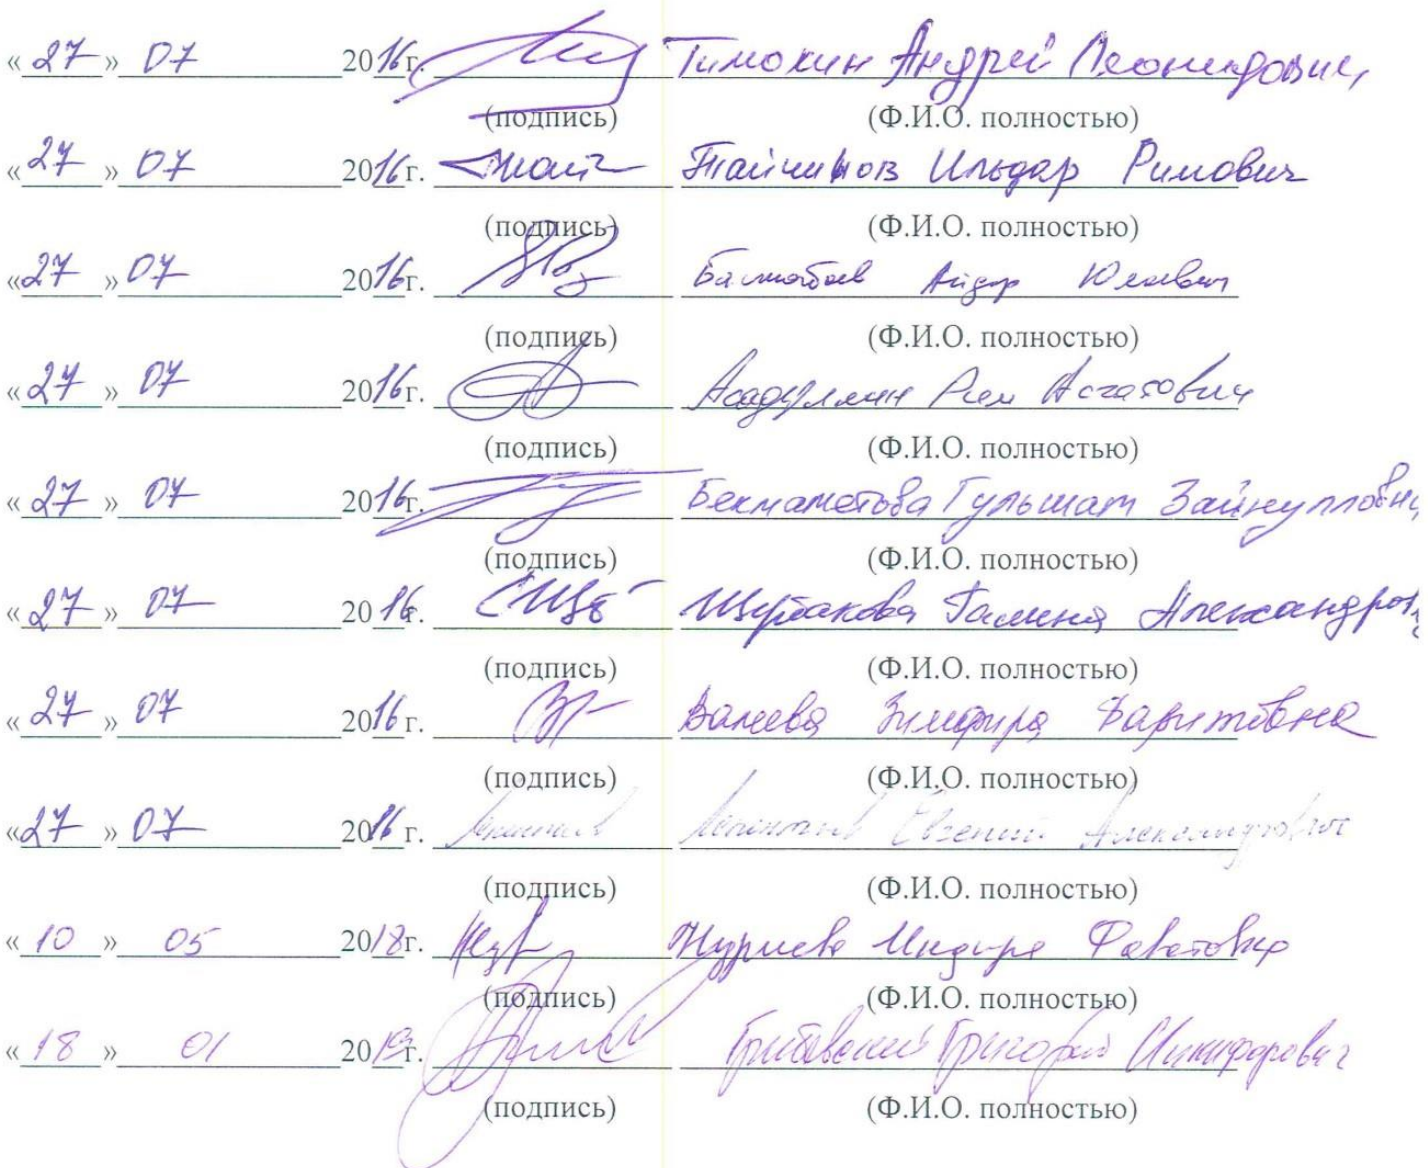 «27» 07 2016г. Тимокин Андрей Леонидович
(подпись) (Ф.И.О. полностью)
«27» 07 2016г. Тайчинов Ильдар Римович
(подпись) (Ф.И.О. полностью)
«27» 07 2016г. Айдар
(подпись) (Ф.И.О. полностью)
«27» 07 2016г. Асадуллин Рим Асгатович
(подпись) (Ф.И.О. полностью)
«27» 07 2016г. Бекмаметова Гульшат Зайнулловн
(подпись) (Ф.И.О. полностью)
«27» 07 2016г. Щербакова Галина Александров
(подпись) (Ф.И.О. полностью)
«27» 07 2016г. Валеева Зимфира Фаритовна
(подпись) (Ф.И.О. полностью)
«27» 07 2016 г. Евгений Александрович
(подпись) (Ф.И.О. полностью)
«10» 05 2018г. Нуриева Индира
(подпись) (Ф.И.О. полностью)
«18» 01 2019г. Григорий Никифорович
(подпись) (Ф.И.О. полностью)